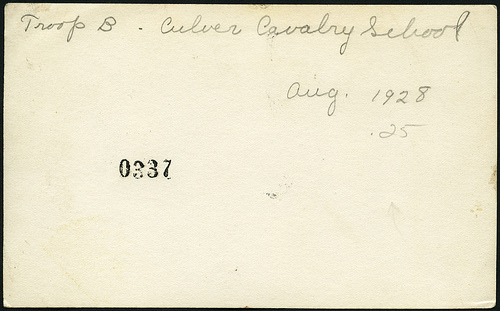 Troop B - Culver Cavalry School
Aug. 1928
.25
0337